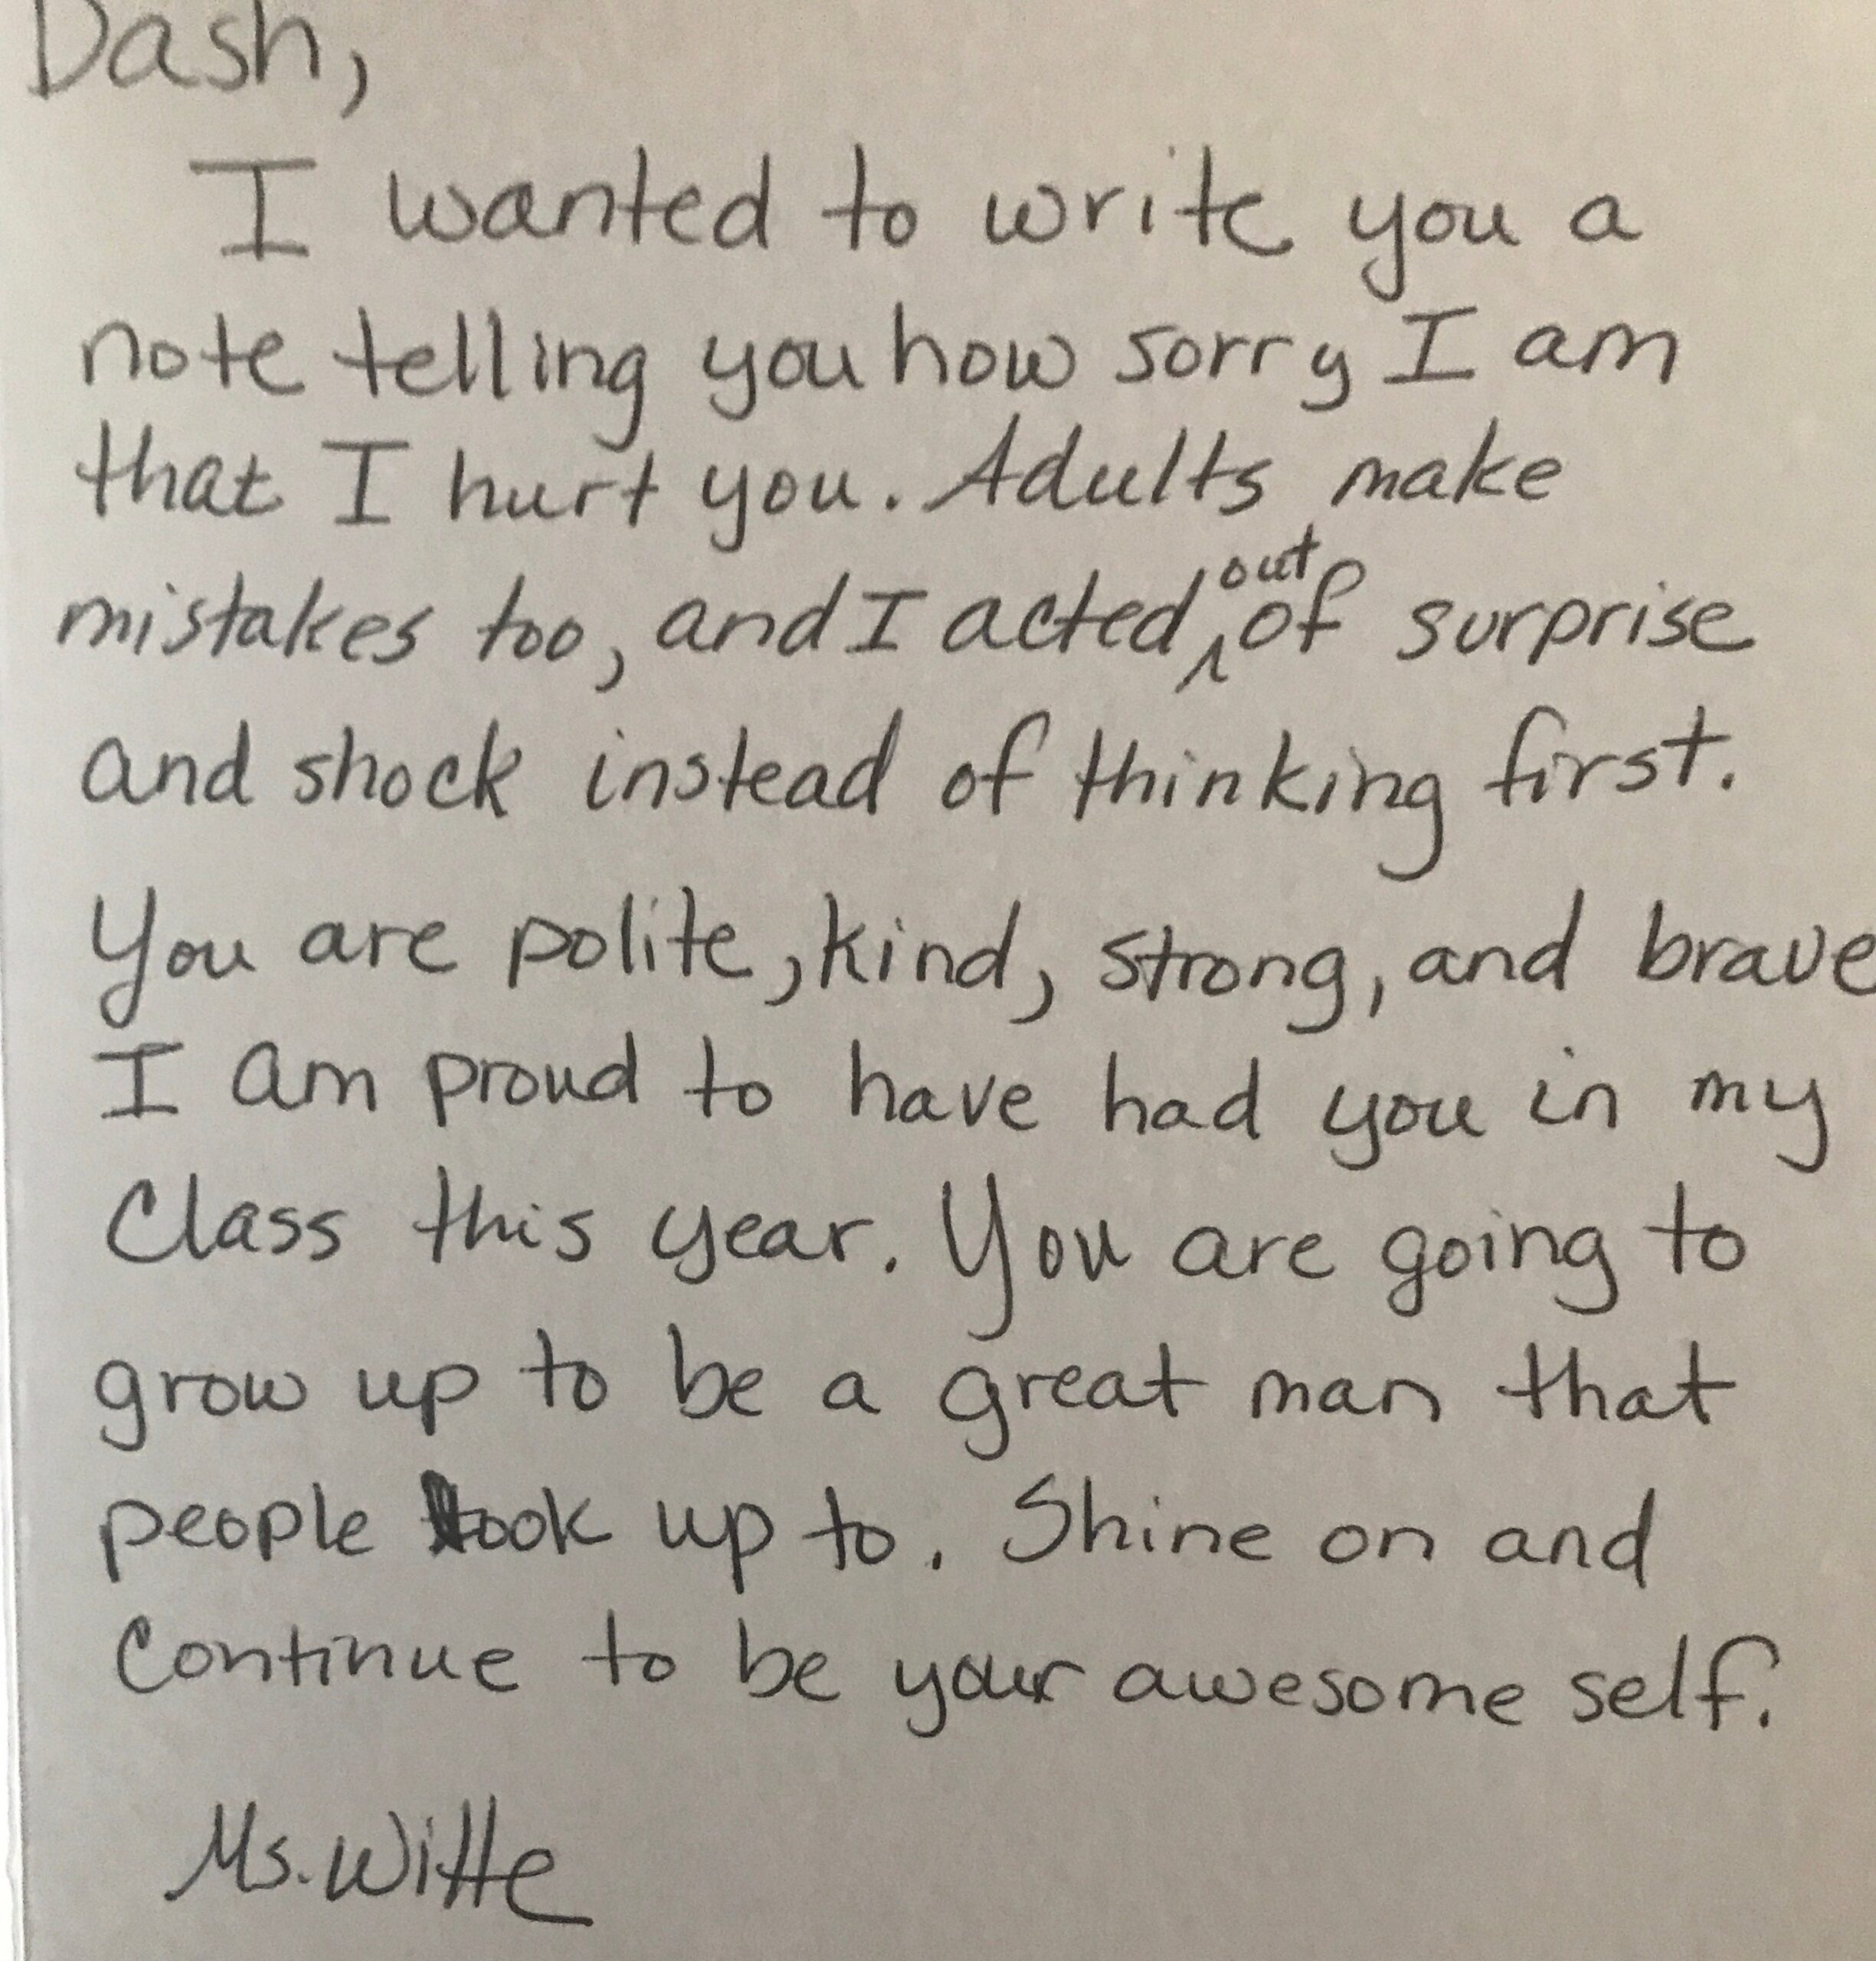 Dash,
I wanted to write you a
note telling you how sorry I am
that I hurt you. Adults make
mistakes too, and I acted out of surprise
and shock instead of thinking first.
You are polite, kind, strong, and brave
I am proud to have had you in my
Class this year. You are going to
grow up to be a great man that
people look up to. Shine on and
Continue to be your awesome self.
Ms. Witte